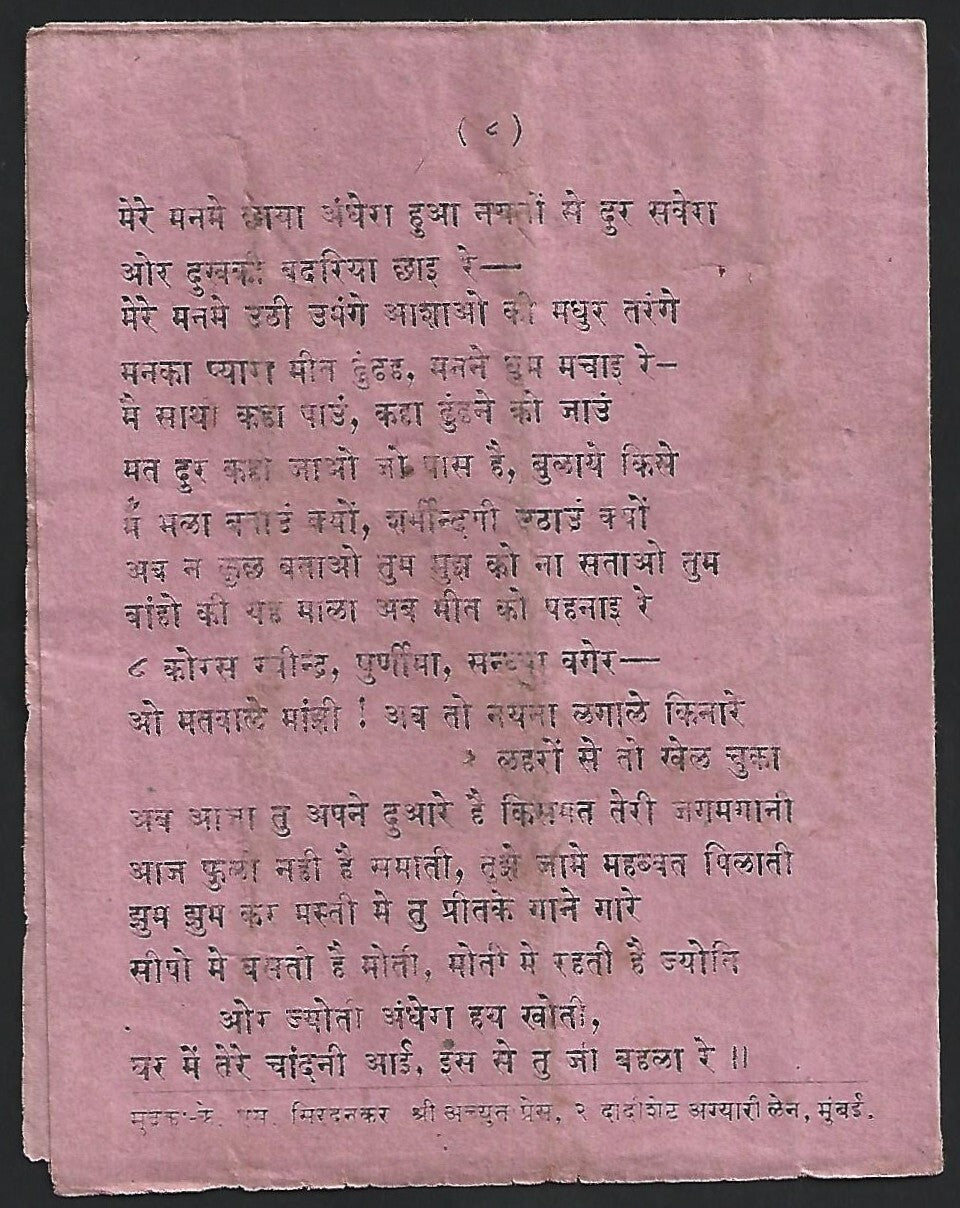 ( ८ )
मेरे मनमे छाया अंधेरा हुआ नयनों से दुर सवेरा
ओर दुखकी बदरिया छाइ रे—
मेरे मनमे उठी उमंगे आशाओ की मधुर तरंगे
मनका प्यारा मीत ढुंढह, मनने धुम मचाइ रे—
मै साथी कहा पाउं, कहा ढुंढने को जाउं
मत दुर कही जाओ जो पास है, बुलाये किसे
मैं भला बताउं क्यों, शर्मीन्दगी उठाउं क्यों
अब न कुछ बताओ तुम मुझ को ना सताओ तुम
बांहो की यह माला अब मीत को पहनाइ रे
८ कोरस रवीन्द्र, पुर्णीमा, सन्ध्या वगेर—
ओ मतवाले मांझी ! अब तो नयना लगाले किनारे
लहरों से तो खेल चुका
अब आजा तु अपने दुआरे है किसमत तेरी जगमगानी
आज फुली नही है समाती, तुझे जामे महब्बत पिलाती
झुम झुम कर मस्ती मे तु प्रीतके गाने गारे
सीपो मे बसतो है मोती, मोती मे रहती है ज्योति
ओर ज्योती अंधेरा हय खोती,
घर में तेरे चांदनी आई, इंस से तु जी बहला रे ॥
मुद्रक:-के. एम. सिरदनकर श्री अच्युत प्रेस, २ दादीशेट अग्यारी लेन, मुंबई.